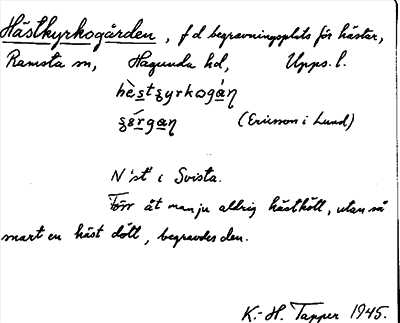 Hästkyrkogården, f d begravningsplats för hästar,
Ramsta sn, Hagunda hd, Upps. l.
(Ericsson i Lund)
N "st" i Svista.
Förr åt man ju aldrig hästkött, utan så
snart en häst dött, begravdes den.
K.-H. Tapper 1945.